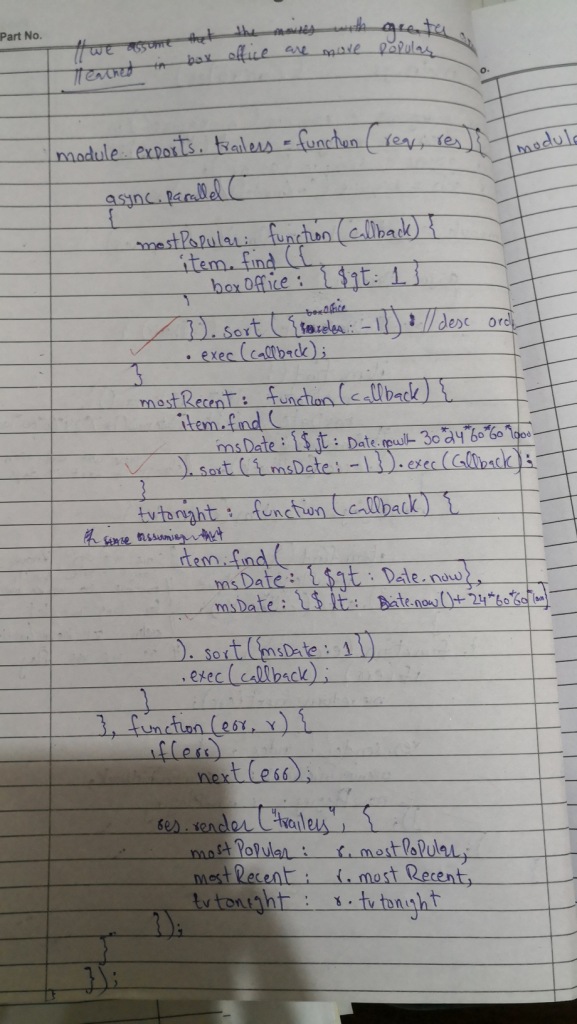 Part No.
//we assume that the movies with greater
//earned in box office are more popular
o.
module.exports.trailers = function(req, res){
module
async.parallel(
{
mostPopular: function(callback){
item.find({
boxOffice: {$gt: 1}
}).sort({boxoffice: -1}) //desc ord
.exec(callback);
}
mostRecent: function(callback){
item.find(
msDate: {$gt: Date.now()- 30*24*60*60*1000
).sort({msDate: -1}).exec(callback);
}
tvtonight: function(callback){
since assuming that
item.find(
msDate: {$gt: Date.now},
msDate: {$lt: Date.now()+24*60*60*1000}
).sort({msDate: 1})
.exec(callback);
}
}, function(err, r){
if(err)
next(err);
res.render("trailers", {
mostPopular: r.mostPopular,
mostRecent: r.mostRecent,
tvtonight: r.tvtonight
});
}
});